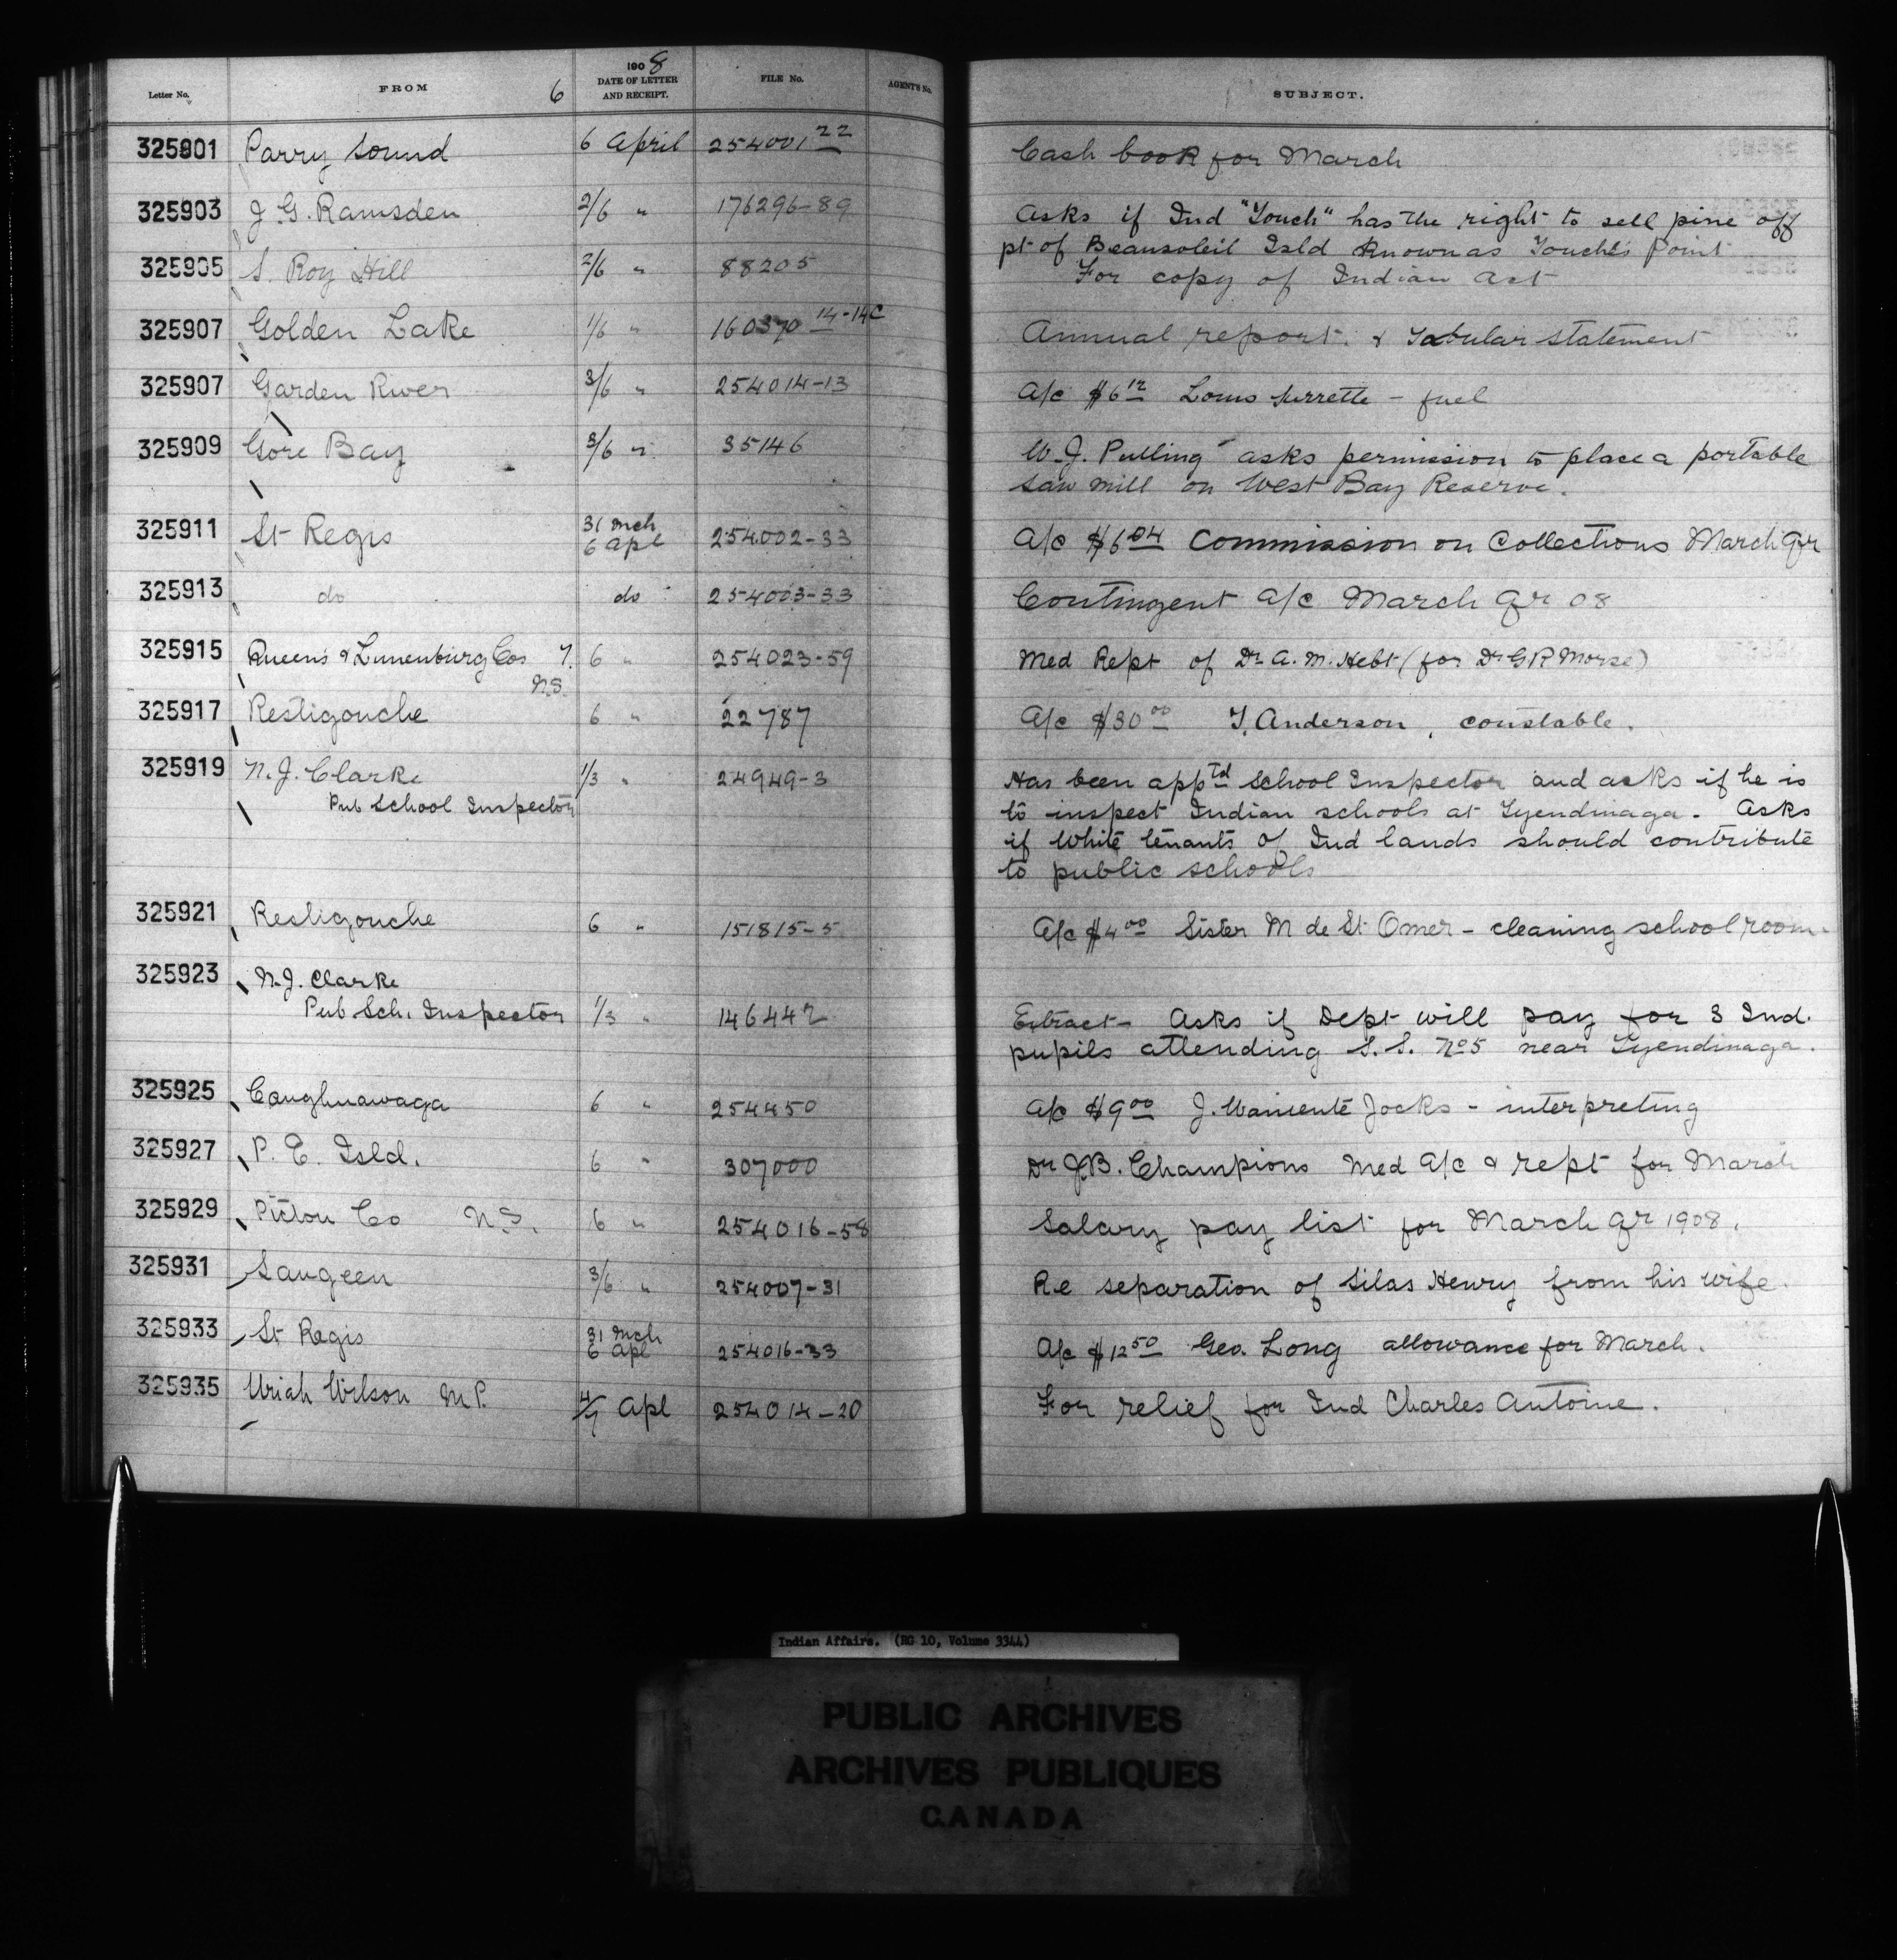 Letter No. FROM 6 1908 DATE OF LETTER AND RECEIPT. FILE No. AGENT'S No. SUBJECT.
325901 Parry Sound 6 April 254001 22 Cash book for March
325903 J G. Ramsden 2/6 " 176296-89 Asks if Ind "Touch" has the right to sell pine off
pt of Beausoleil Isld known as Touche's Point
325905 S. Roy Hill 2/6 " 88205 For copy of Indian Act
325907 Golden Lake 1/6 " 160370 14-14C Annual report. & Tabular statement
325907 Garden River 3/6 " 254014-13 A/c $6 12 Louis Surrette - fuel
325909 Gore Bay 3/6 " 35146 W.J. Pulling asks permission to place a portable
saw mill on West Bay Reserve.
325911 St Regis 31 Mch 6 Apl 254002-33 A/c $6 04 Commission on Collections March Qr
325913 do do 254003-33 Contingent A/c March Qr 08
325915 Queen's & Lunenburg Cos N.S. 6 " 254023-59 Med Rept of Dr A. M. Hebt (for Dr G R Morse)
325917 Restigouche 6 " 22787 A/c $30 00 T. Anderson, constable.
325919 N. J. Clarke 1/3 " 24949-3 Has been appTd School Inspector and asks if he is
Pub School Inspector to inspect Indian schools at Tyendinaga. Asks
if White tenants of Ind lands should contribute
to public schools
325921 Restigouche 6 " 151815-5 A/c $4 00 Sister M de St Omer - cleaning school room.
325923 N. J. Clarke
Pub Sch. Inspector 1/3 " 146442 Extract - Asks if Dept will pay for 3 Ind.
pupils attending S. S. No 5 near Tyendinaga.
325925 Caughnawaga 6 " 254450 A/c $9 00 J. Jocks - interpreting
325927 P. E. Isld. 6 " 307000 Dr J.B. Champions Med A/c & rept for March
325929 Pictou Co N.S. 6 " 254016-58 Salary pay list for March Qr 1908.
325931 Saugeen 3/6 " 254007-31 Re separation of Silas Henry from his wife.
325933 St Regis 31 Mch 6 Apl 254016-33 A/c $12 50 Geo. Long allowance for March.
325935 Uriah Wilson M.P. 4/7 Apl 254014-20 For relief for Ind Charles Antoine.
Indian Affairs. (RG 10, Volume 3344)
PUBLIC ARCHIVES
ARCHIVES PUBLIQUES
CANADA